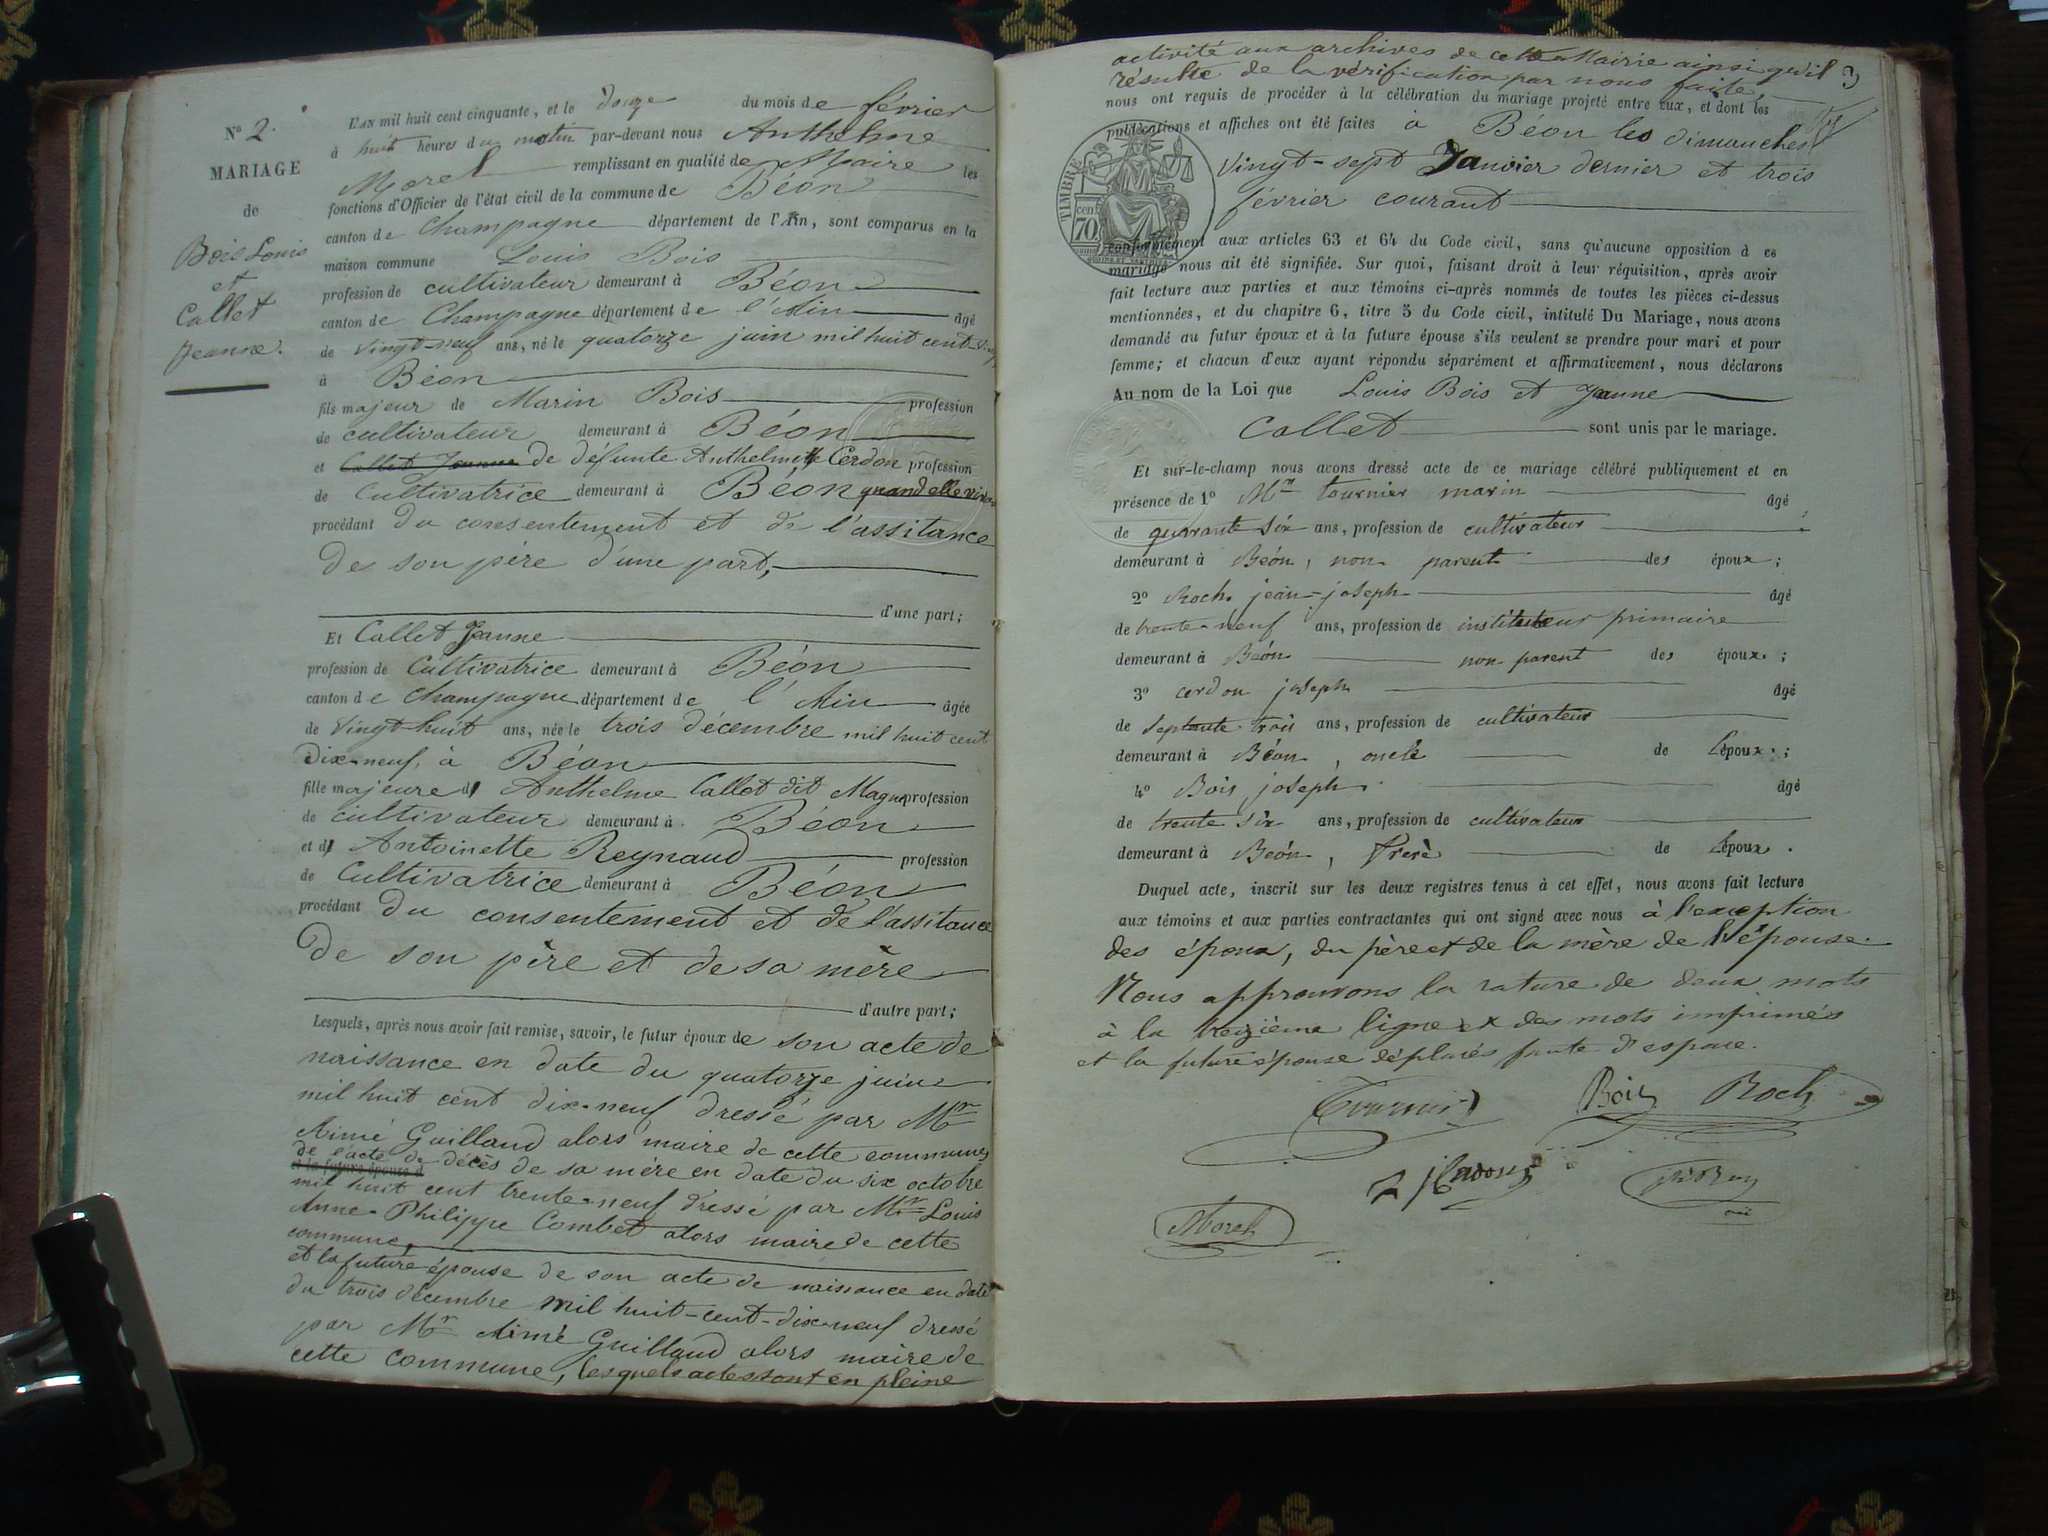 N° 2.
MARIAGE
de
Bois Louis
et
Callet
Jeanne.
L'AN mil huit cent cinquante, et le douze du mois de février
à huit heures du matin par-devant nous Anthelme
Morel remplissant en qualité de Maire les
fonctions d'Officier de l'état civil de la commune de Béon
canton de Champagne département de l'Ain, sont comparus en la
maison commune Louis Bois
profession de cultivateur demeurant à Béon
canton de Champagne département de l'Ain âgé
de vingt-neuf ans, né le quatorze juin mil huit cent
à Béon
fils majeur de Marin Bois profession
de cultivateur demeurant à Béon
et Callet Jeanne de défunte Anthelmette Cerdon profession
de Cultivatrice demeurant à Béon quand elle vivait
procédant du consentement et de l'assitance
de son père d'une part,
d'une part;
Et Callet Jeanne
profession de Cultivatrice demeurant à Béon
canton de Champagne département de l'Ain âgée
de vingt-huit ans, née le trois décembre mil huit cent
dix-neuf, à Béon
fille majeure d' Anthelme Callet dit Magn profession
de cultivateur demeurant à Béon
et d' Antoinette Reynaud profession
de Cultivatrice demeurant à Béon
procédant du consentement et de l'assitance
de son père et de sa mère
d'autre part;
Lesquels, après nous avoir fait remise, savoir, le futur époux de son acte de
naissance en date du quatorze juin
mil huit cent dix-neuf dressé par Mr
Aimé Guillaud alors maire de cette commune,
de l'acte de décès de sa mère en date du six octobre
et la future épouse d
mil huit cent trente-neuf dressé par Mr Louis
Anne-Philippe Combet alors maire de cette
commune,
et la future épouse de son acte de naissance en date
du trois décembre mil huit-cent-dix-neuf dressé
par Mr Aimé Guillaud alors maire de
cette commune, lesquels actes sont en pleine
activité aux archives de cette Mairie ainsi qu'il
résulte de la vérification par nous faite,
3
nous ont requis de procéder à la célébration du mariage projeté entre eux, et dont les
publications et affiches ont été faites à Béon les dimanches
vingt-sept Janvier dernier et trois
février courant
TIMBRE
70 cent
conformément aux articles 63 et 64 du Code civil, sans qu'aucune opposition à ce
mariage nous ait été signifiée. Sur quoi, faisant droit à leur réquisition, après avoir
fait lecture aux parties et aux témoins ci-après nommés de toutes les pièces ci-dessus
mentionnées, et du chapitre 6, titre 5 du Code civil, intitulé Du Mariage, nous avons
demandé au futur époux et à la future épouse s'ils veulent se prendre pour mari et pour
femme; et chacun d'eux ayant répondu séparément et affirmativement, nous déclarons
Au nom de la Loi que Louis Bois et Jeanne
Callet sont unis par le mariage.
Et sur-le-champ nous avons dressé acte de ce mariage célébré publiquement et en
présence de 1° Mr tournier marin âgé
de quarante six ans, profession de cultivateur
demeurant à Béon, non parent des époux;
2° Roch jean-joseph âgé
de trente-neuf ans, profession de instituteur primaire
demeurant à Béon non parent des époux;
3° cerdon joseph âgé
de septante trois ans, profession de cultivateur
demeurant à Béon, oncle de l'époux;
4° Bois joseph âgé
de trente six ans, profession de cultivateur
demeurant à Béon, frère de l'époux.
Duquel acte, inscrit sur les deux registres tenus à cet effet, nous avons fait lecture
aux témoins et aux parties contractantes qui ont signé avec nous à l'exception
des époux, du père et de la mère de l'épouse.
Nous approuvons la rature de deux mots
à la treizième ligne et des mots imprimés
et la future épouse déplacés faute d'espace.
Tournier
Bois
Roch
Morel